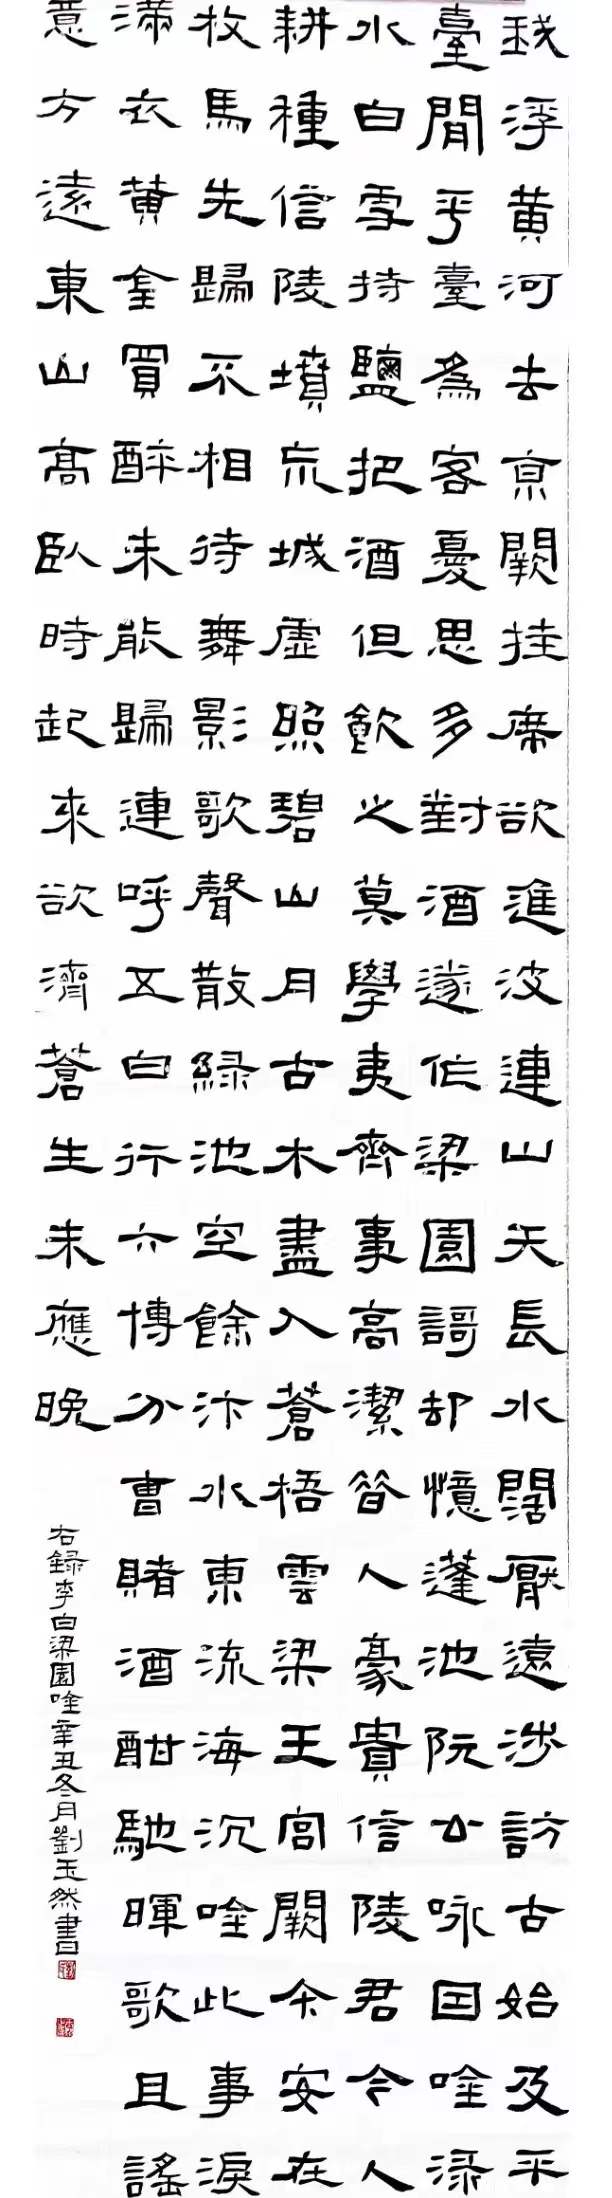 我浮黄河去京闕挂席欲進波連山天長水闊厭遠涉訪古始及平
臺閒平臺為客憂思多對酒遂作梁園謌却憶蓬池阮公咏因唫渌
水白雪持鹽把酒但飲之莫學夷齊事高潔昔人豪貴信陵君今人
耕種信陵墳荒城虛照碧山月古木盡入蒼梧雲梁王宮闕今安在
枚馬先歸不相待舞影歌聲散綠池空餘汴水東流海沉唫此事淚
滿衣黄金買醉未能歸連呼五白行六博分曹賭酒酣馳暉歌且謠
意方遠東山高臥時起來欲濟蒼生未應晚
右録李白梁園唫辛丑冬月劉玉然書